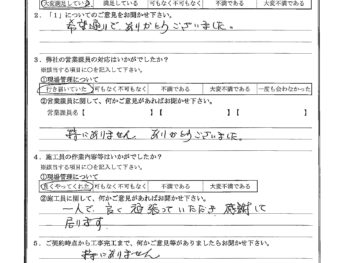 大変満足している 満足している 可もなく不可もなく 不満である 大変不満である
2．「1」についてのご意見をお聞かせ下さい。
希望通りで ありがとうございました。
3．弊社の営業員の対応はいかがでしたか？
※該当する項目に○を記入して下さい。
①現場管理について
行き届いていた 可もなく不可もなく 不満である 大変不満である 一度も会わなかった
②営業員に関して、何かご意見があればお聞かせ下さい。
営業員名【 】【 】【
特にありません ありがとうございました。
4．施工員の作業内容等はいかがでしたか？
※該当する項目に○を記入して下さい。
①現場管理について
良くやってくれた 可もなく不可もなく 不満である 大変不満である
②施工員に関して、何かご意見があればお聞かせ下さい。
一人で 良く 頑張っていただき 感謝して
居ります
5．ご契約時点から工事完工まで、何かご意見等がありましたらお聞かせ下さい。
特にありません